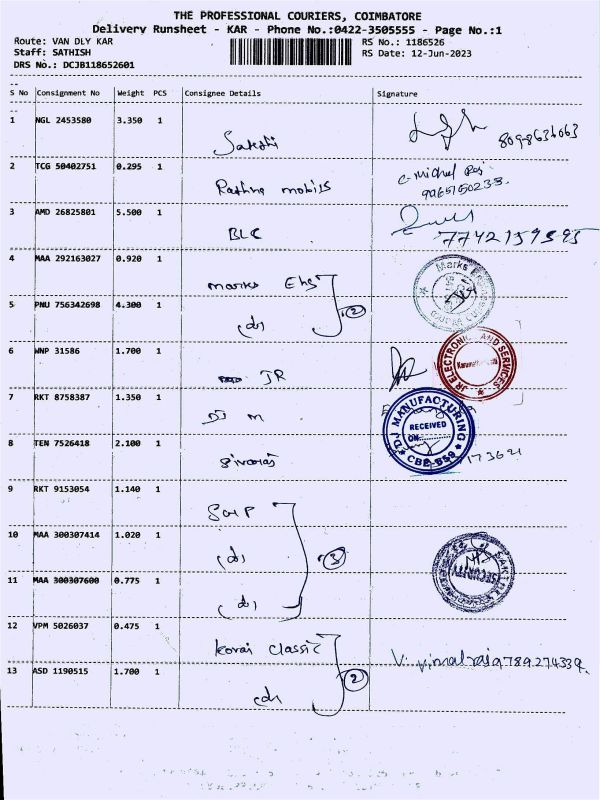 THE PROFESSIONAL COURIERS, COIMBATORE
Delivery Runsheet - KAR - Phone No.:0422-3505555 - Page No.:1
Route: VAN DLY KAR RS No.: 1186526
Staff: SATHISH RS Date: 12-Jun-2023
DRS No.: DCJB118652601
S No Consignment No Weight PCS Consignee Details Signature
1 NGL 2453580 3.350 1
2 TCG 50402751 0.295 1 Rathna mobils
3 AMD 26825801 5.500 1 BLC 7742159595
4 MAA 292163027 0.920 1 marks Eng Marks
5 PNU 756342698 4.300 1 (d) 2
6 WNP 31586 1.700 1 JR JR ELECTRONIC AND SERVICES
7 RKT 8758387 1.350 1 DJ M DJ MANUFACTURING RECEIVED ON CBE-659
8 TEN 7526418 2.100 1
9 RKT 9153054 1.140 1
10 MAA 300307414 1.020 1 (d) 3 SECURITY
11 MAA 300307600 0.775 1 (d)
12 VPM 5026037 0.475 1 kovai classic V. vimalraj 9789274339
13 ASD 1190515 1.700 1 (d) 2